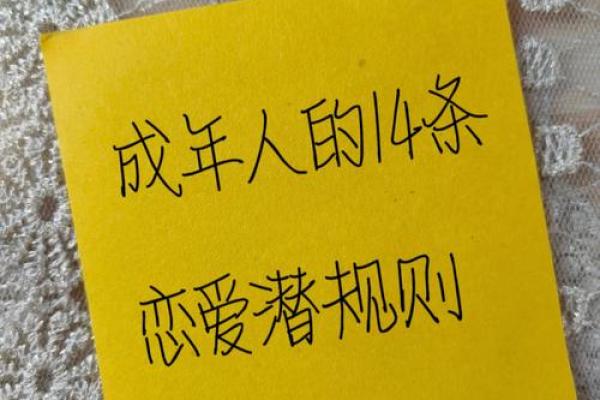 成年人的14条
恋爱潜规则